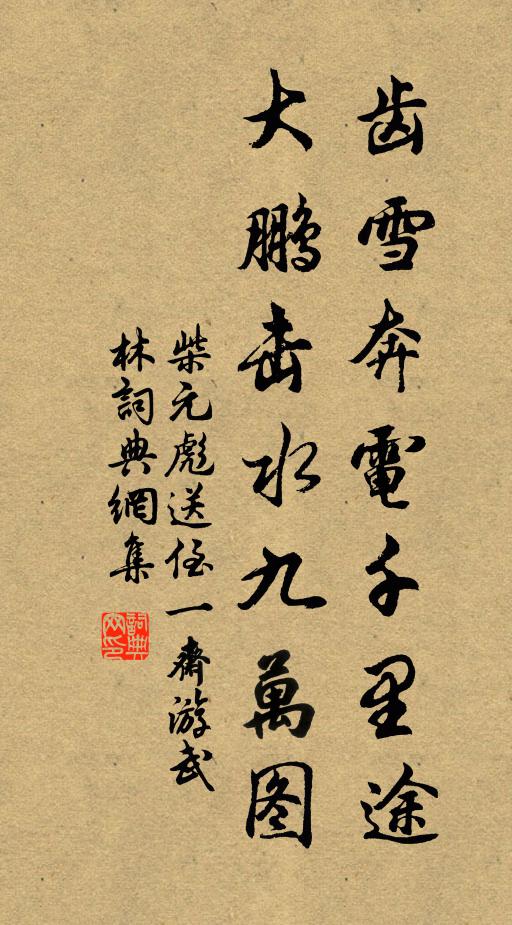 齿雪奔電千里途
大鹏击水九萬图
柴元彪送侄一齋游武
林詞典網集
詞典網印